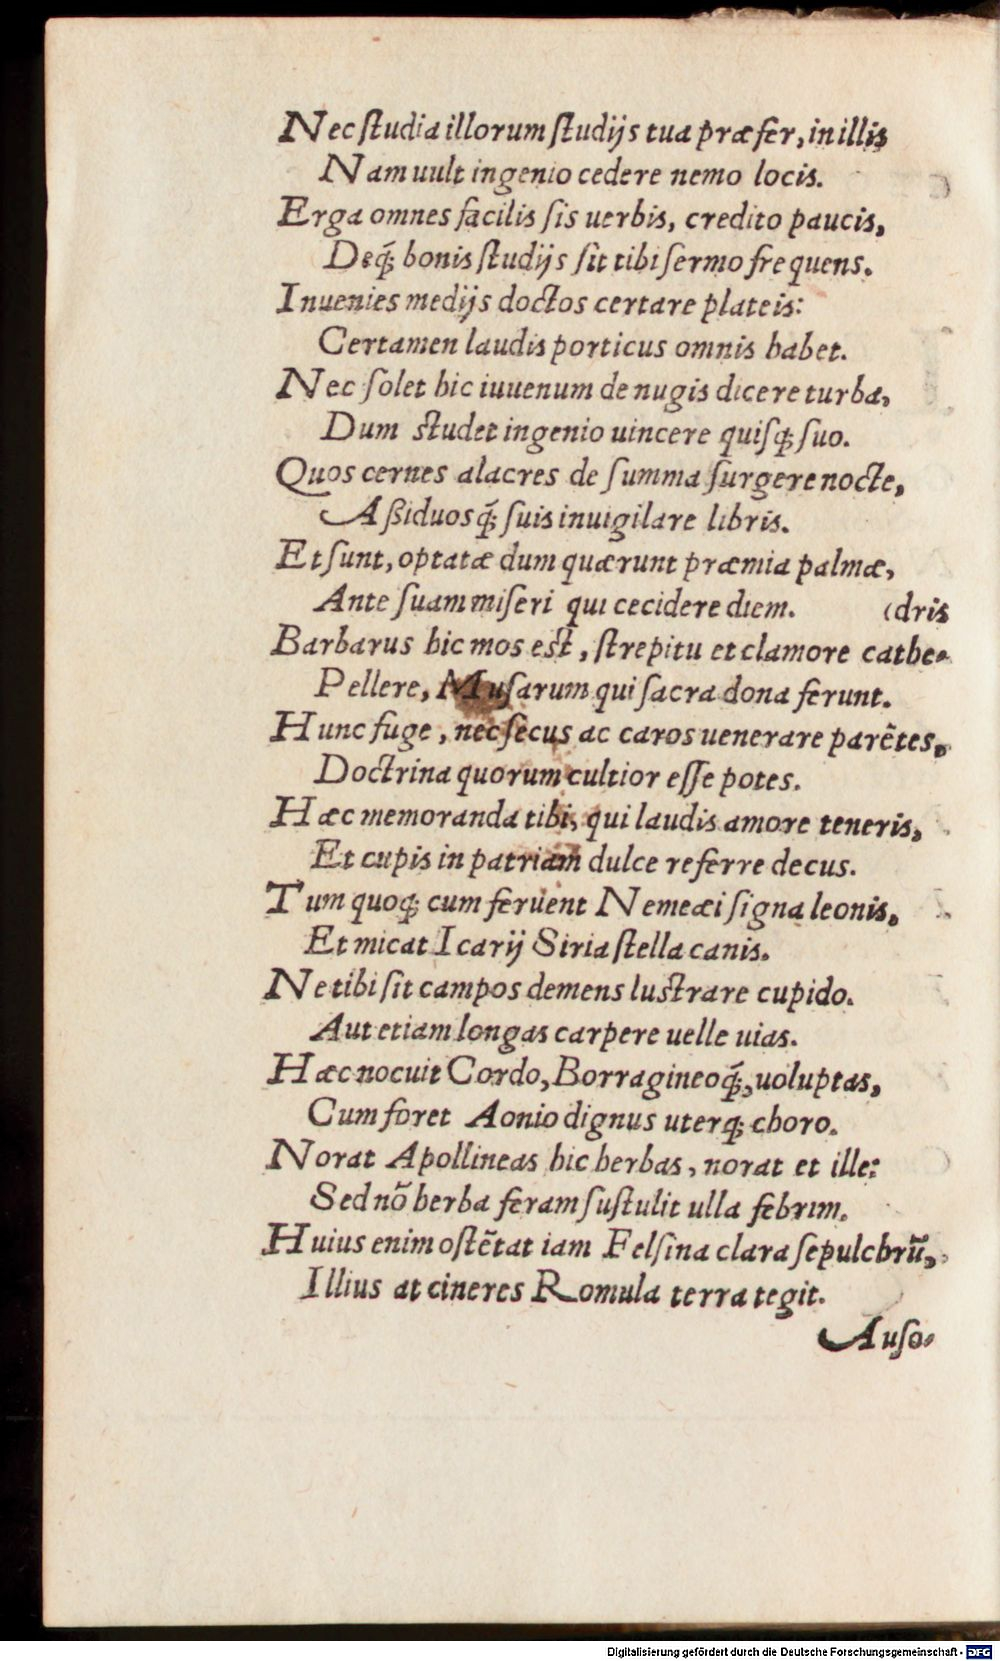 Nec ſtudia illorum ſtudijs tua præfer, in illis
Nam uult ingenio cedere nemo locis.
Erga omnes facilis ſis uerbis, credito paucis,
Deq́; bonis ſtudijs ſit tibi ſermo frequens.
Inuenies medijs doctos certare plateis:
Certamen laudis porticus omnis habet.
Nec ſolet hic iuuenum de nugis dicere turba,
Dum studet ingenio uincere quiſq; ſuo.
Quos cernes alacres de ſumma ſurgere nocte,
Aßiduosq́; ſuis inuigilare libris.
Et ſunt, optatæ dum quærunt præmia palmæ,
Ante ſuam miſeri qui cecidere diem. (dris
Barbarus hic mos est, ſtrepitu et clamore cathe-
Pellere, Muſarum qui ſacra dona ferunt.
Hunc fuge, nec ſecus ac caros uenerare parẽtes,
Doctrina quorum cultior eſſe potes.
Hæc memoranda tibi, qui laudis amore teneris,
Et cupis in patriam dulce referre decus.
Tum quoq; cum feruent Nemeæi ſigna leonis,
Et micat Icarij Siria ſtella canis.
Ne tibi ſit campos demens lustrare cupido.
Aut etiam longas carpere uelle uias.
Hæc nocuit Cordo, Borragineoq́;, uoluptas,
Cum foret Aonio dignus uterq; choro.
Norat Apollineas hic herbas, norat et ille:
Sed nõ herba feram ſuſtulit ulla febrim.
Huius enim oſtẽtat iam Felſina clara ſepulchrũ,
Illius at cineres Romula terra tegit.
Auſo-
Digitalisierung gefördert durch die Deutsche Forschungsgemeinschaft - DFG